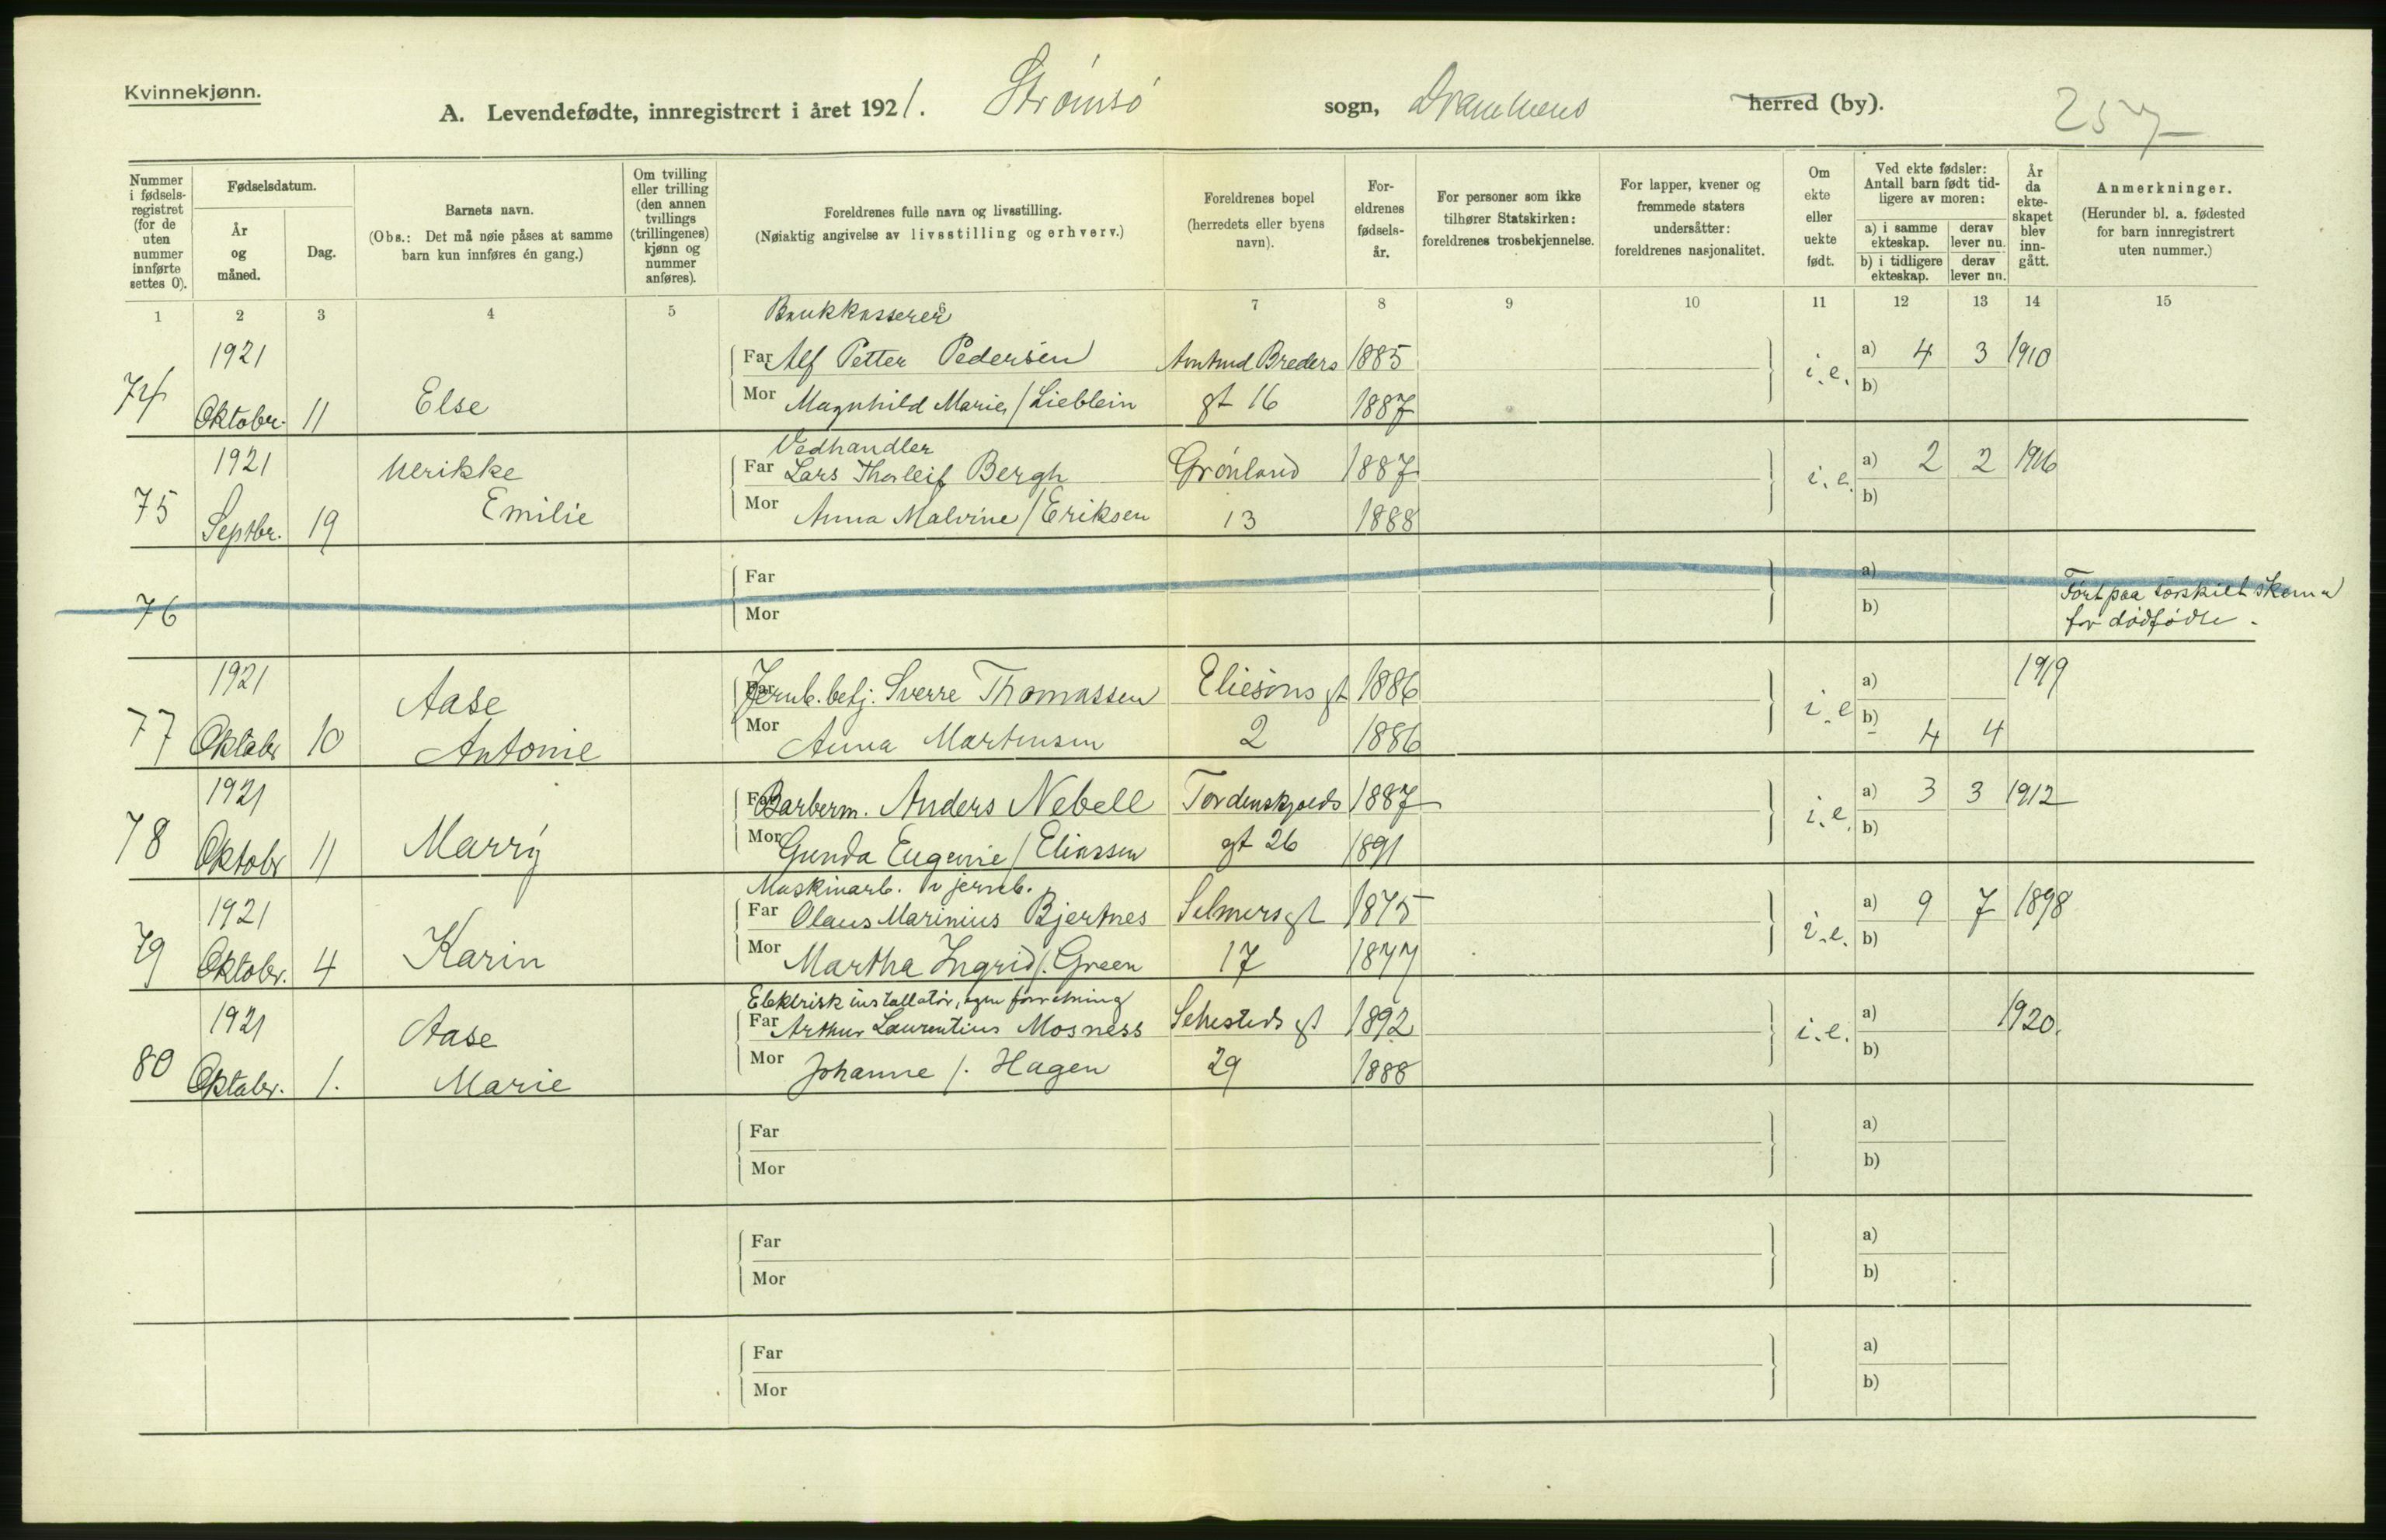 Kvinnekjønn.
A. Levendefødte, innregistrert i året 1921. Strømsø sogn, Drammens herred (by). 257
Nummer i fødselsregistret (for de uten nummer innførte settes 0).
Fødselsdatum.
År og måned.
Dag.
Barnets navn.
(Obs.: Det må nøie påses at samme barn kun innføres én gang.)
Om tvilling eller trilling (den annen tvillings (trillingenes) kjønn og nummer anføres).
Foreldrenes fulle navn og livsstilling.
(Nøiaktig angivelse av livsstilling og erhverv.)
Foreldrenes bopel (herredets eller byens navn).
Foreldrenes fødselsår.
For personer som ikke tilhører Statskirken: foreldrenes trosbekjennelse.
For lapper, kvener og fremmede staters undersåtter: foreldrenes nasjonalitet.
Om ekte eller uekte født.
Ved ekte fødsler: Antall barn født tidligere av moren:
a) i samme ekteskap.
derav lever nu.
b) i tidligere ekteskap.
derav lever nu.
År da ekteskapet blev inngått.
Anmerkninger.
(Herunder bl. a. fødested for barn innregistrert uten nummer.)
1 2 3 4 5 6 7 8 9 10 11 12 13 14 15
Bankkasserer
1921 Far Alf Petter Pedersen Amtmd Breders 1885 a) 4 3 1910
74 Oktobr. 11 Else Mor Magnhild Marie / Lieblein gt 16 1887 i.e. b)
Vedhandler
1921 Ulrikke Far Lars Thorleif Bergh Grønland 1887 a) 2 2 1916
75 Septbr. 19 Emilie Mor Anna Malvine / Eriksen 13 1888 i.e. b)
Far a)
76 Mor b) Ført paa særskilt skema
for dødfødte.
1921 Aase Far Jernb. betj. Sverre Thomassen Eliesons gt 1886 a) 1919
77 Oktobr 10 Antonie Mor Anna Martinsen 2 1886 i.e b) 4 4
1921 Far Barberm. Anders Nebell Tordenskjolds 1887 a) 3 3 1912
78 Oktobr 11 Marry Mor Gunda Eugenie / Eliassen gt 26 1891 i.e. b)
Maskinarb. v jernb.
1921 Far Olaus Marinius Bjertnes Selmersgt 1875 a) 9 7 1898
79 Oktobr. 4 Karin Mor Martha Ingrid /. Green 17 1877 i.e. b)
Elektrisk installatør, egen forretning
1921 Aase Far Arthur Laurentius Mosness Sehesteds gt 1892 a) 1920.
80 Oktobr. 1. Marie Mor Johanne /. Hagen 29 1888 i.e. b)
Far a)
Mor b)
Far a)
Mor b)
Far a)
Mor b)